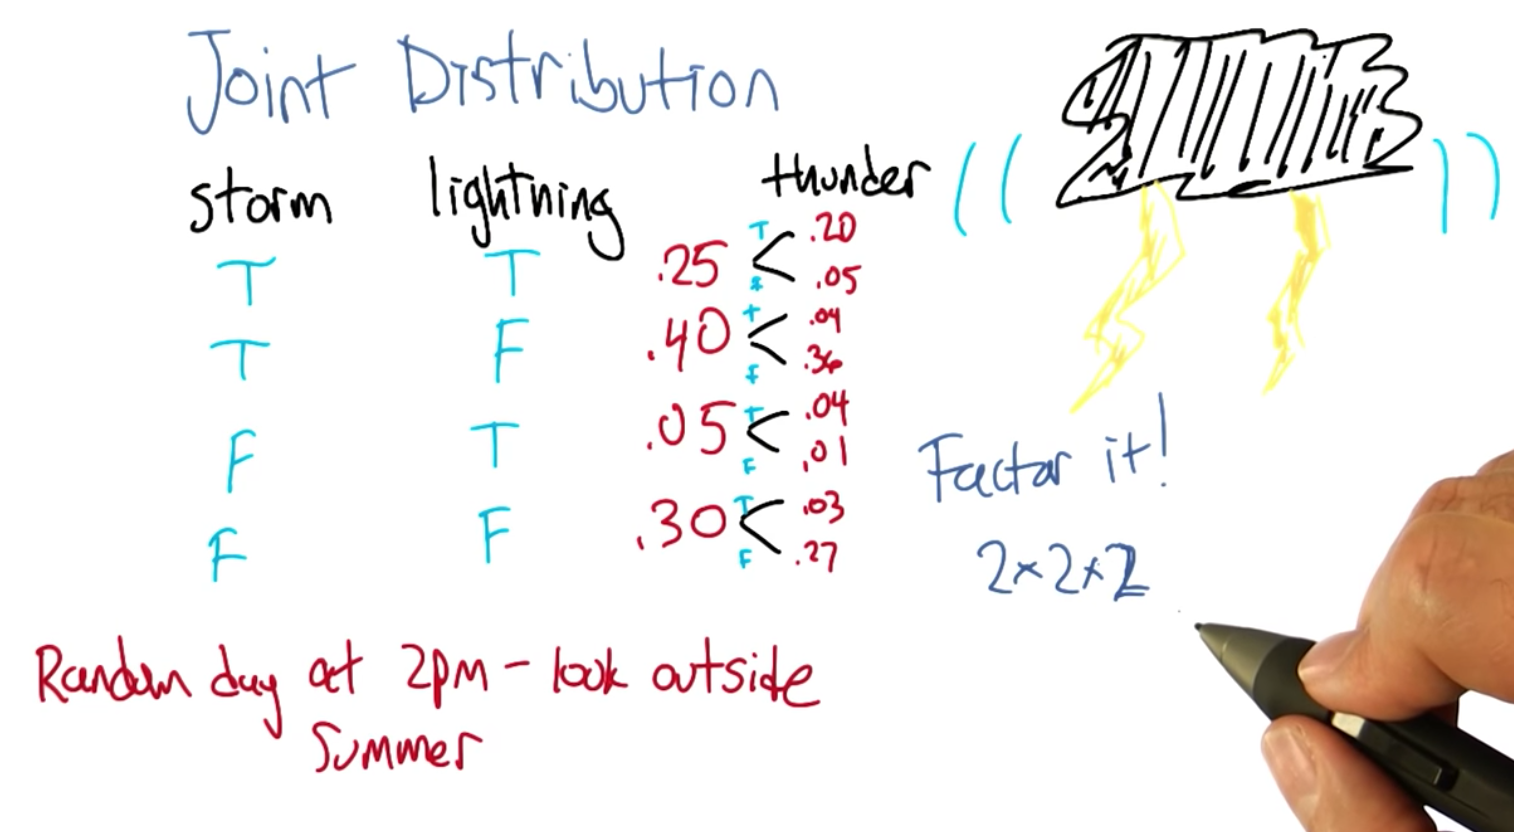 Joint Distribution
storm lightning thunder
T T .25 T .20
F .05
T F .40 T .04
F .36
F T .05 T .04
F .01
F F .30 T .03
F .27
Factor it!
2×2×2
Random day at 2pm – look outside
Summer